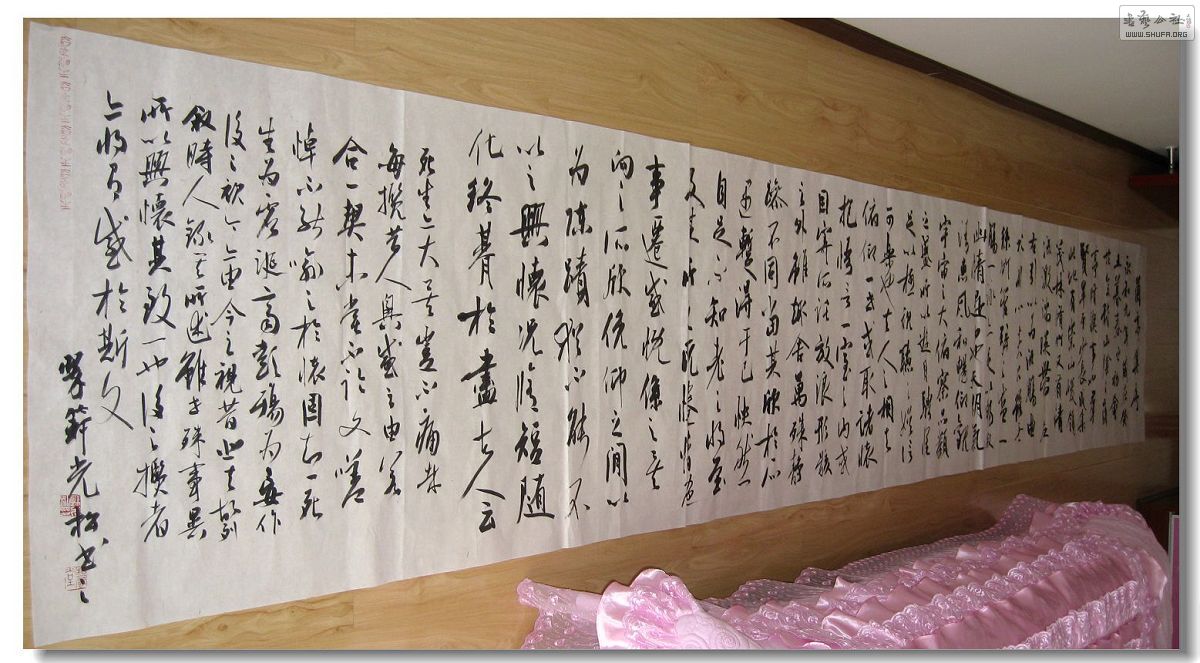 蘭亭集序
永和九年歲在癸
丑暮春之初會
賢畢至少長咸集
此地有崇山峻領
茂林脩竹又有清
流激湍映帶左
右引以為流觴曲
水列坐其次雖無
絲竹管弦之盛一
觴一詠亦足以暢敘
幽情是日也天朗氣
清惠風和暢仰觀
宇宙之大俯察品類
之盛所以遊目騁懷
足以極視聽之娛信
可樂也夫人之相與
俯仰一世或取諸懷
抱悟言一室之內或
因寄所託放浪形骸
之外雖趣舍萬殊靜
躁不同當其欣於所
遇暫得于己快然
自足不知老之將至
及其所之既惓情隨
事遷感慨係之矣
向之所欣俛仰之間以
為陳蹟猶不能不
以之興懷況脩短隨
化終期於盡古人云
死生亦大矣豈不痛哉
每攬昔人興感之由若
合一契未嘗不臨文嗟
悼不能喻之於懷固知一死
生為虛誕齊彭殤為妄作
後之視今亦由今之視昔悲夫故列
敘時人錄其所述雖世殊事異
所以興懷其致一也後之攬者
亦將有感於斯文
光松書
書藝公社
WWW.SHUFA.ORG